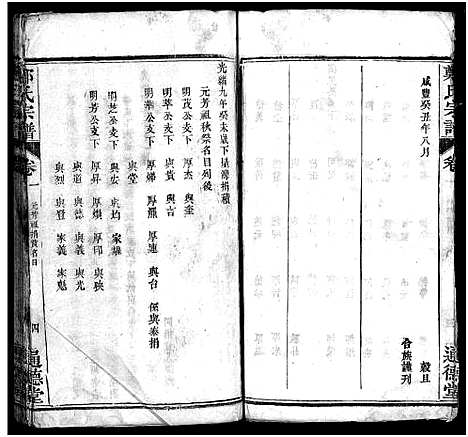 鄭氏宗譜
卷
咸豐癸丑年八月
穀旦
合族謹刊
通德堂
光緒九年癸未歲下
捐積
元芳祖秋祭名目列後
明茂公支下 厚杰 與奎
與貴 與吉
明華公支下 厚濂 厚連 與台 係與泰捐
與堂
明芝公支下 與宏 與均 家雄
明芳公支下 厚昇 厚煥 厚印 與秧
與道 與德 與義 與光
與烈 與賢 家義 家魁
氏宗譜
卷一
元芳祖捐貲名目
四
通德堂